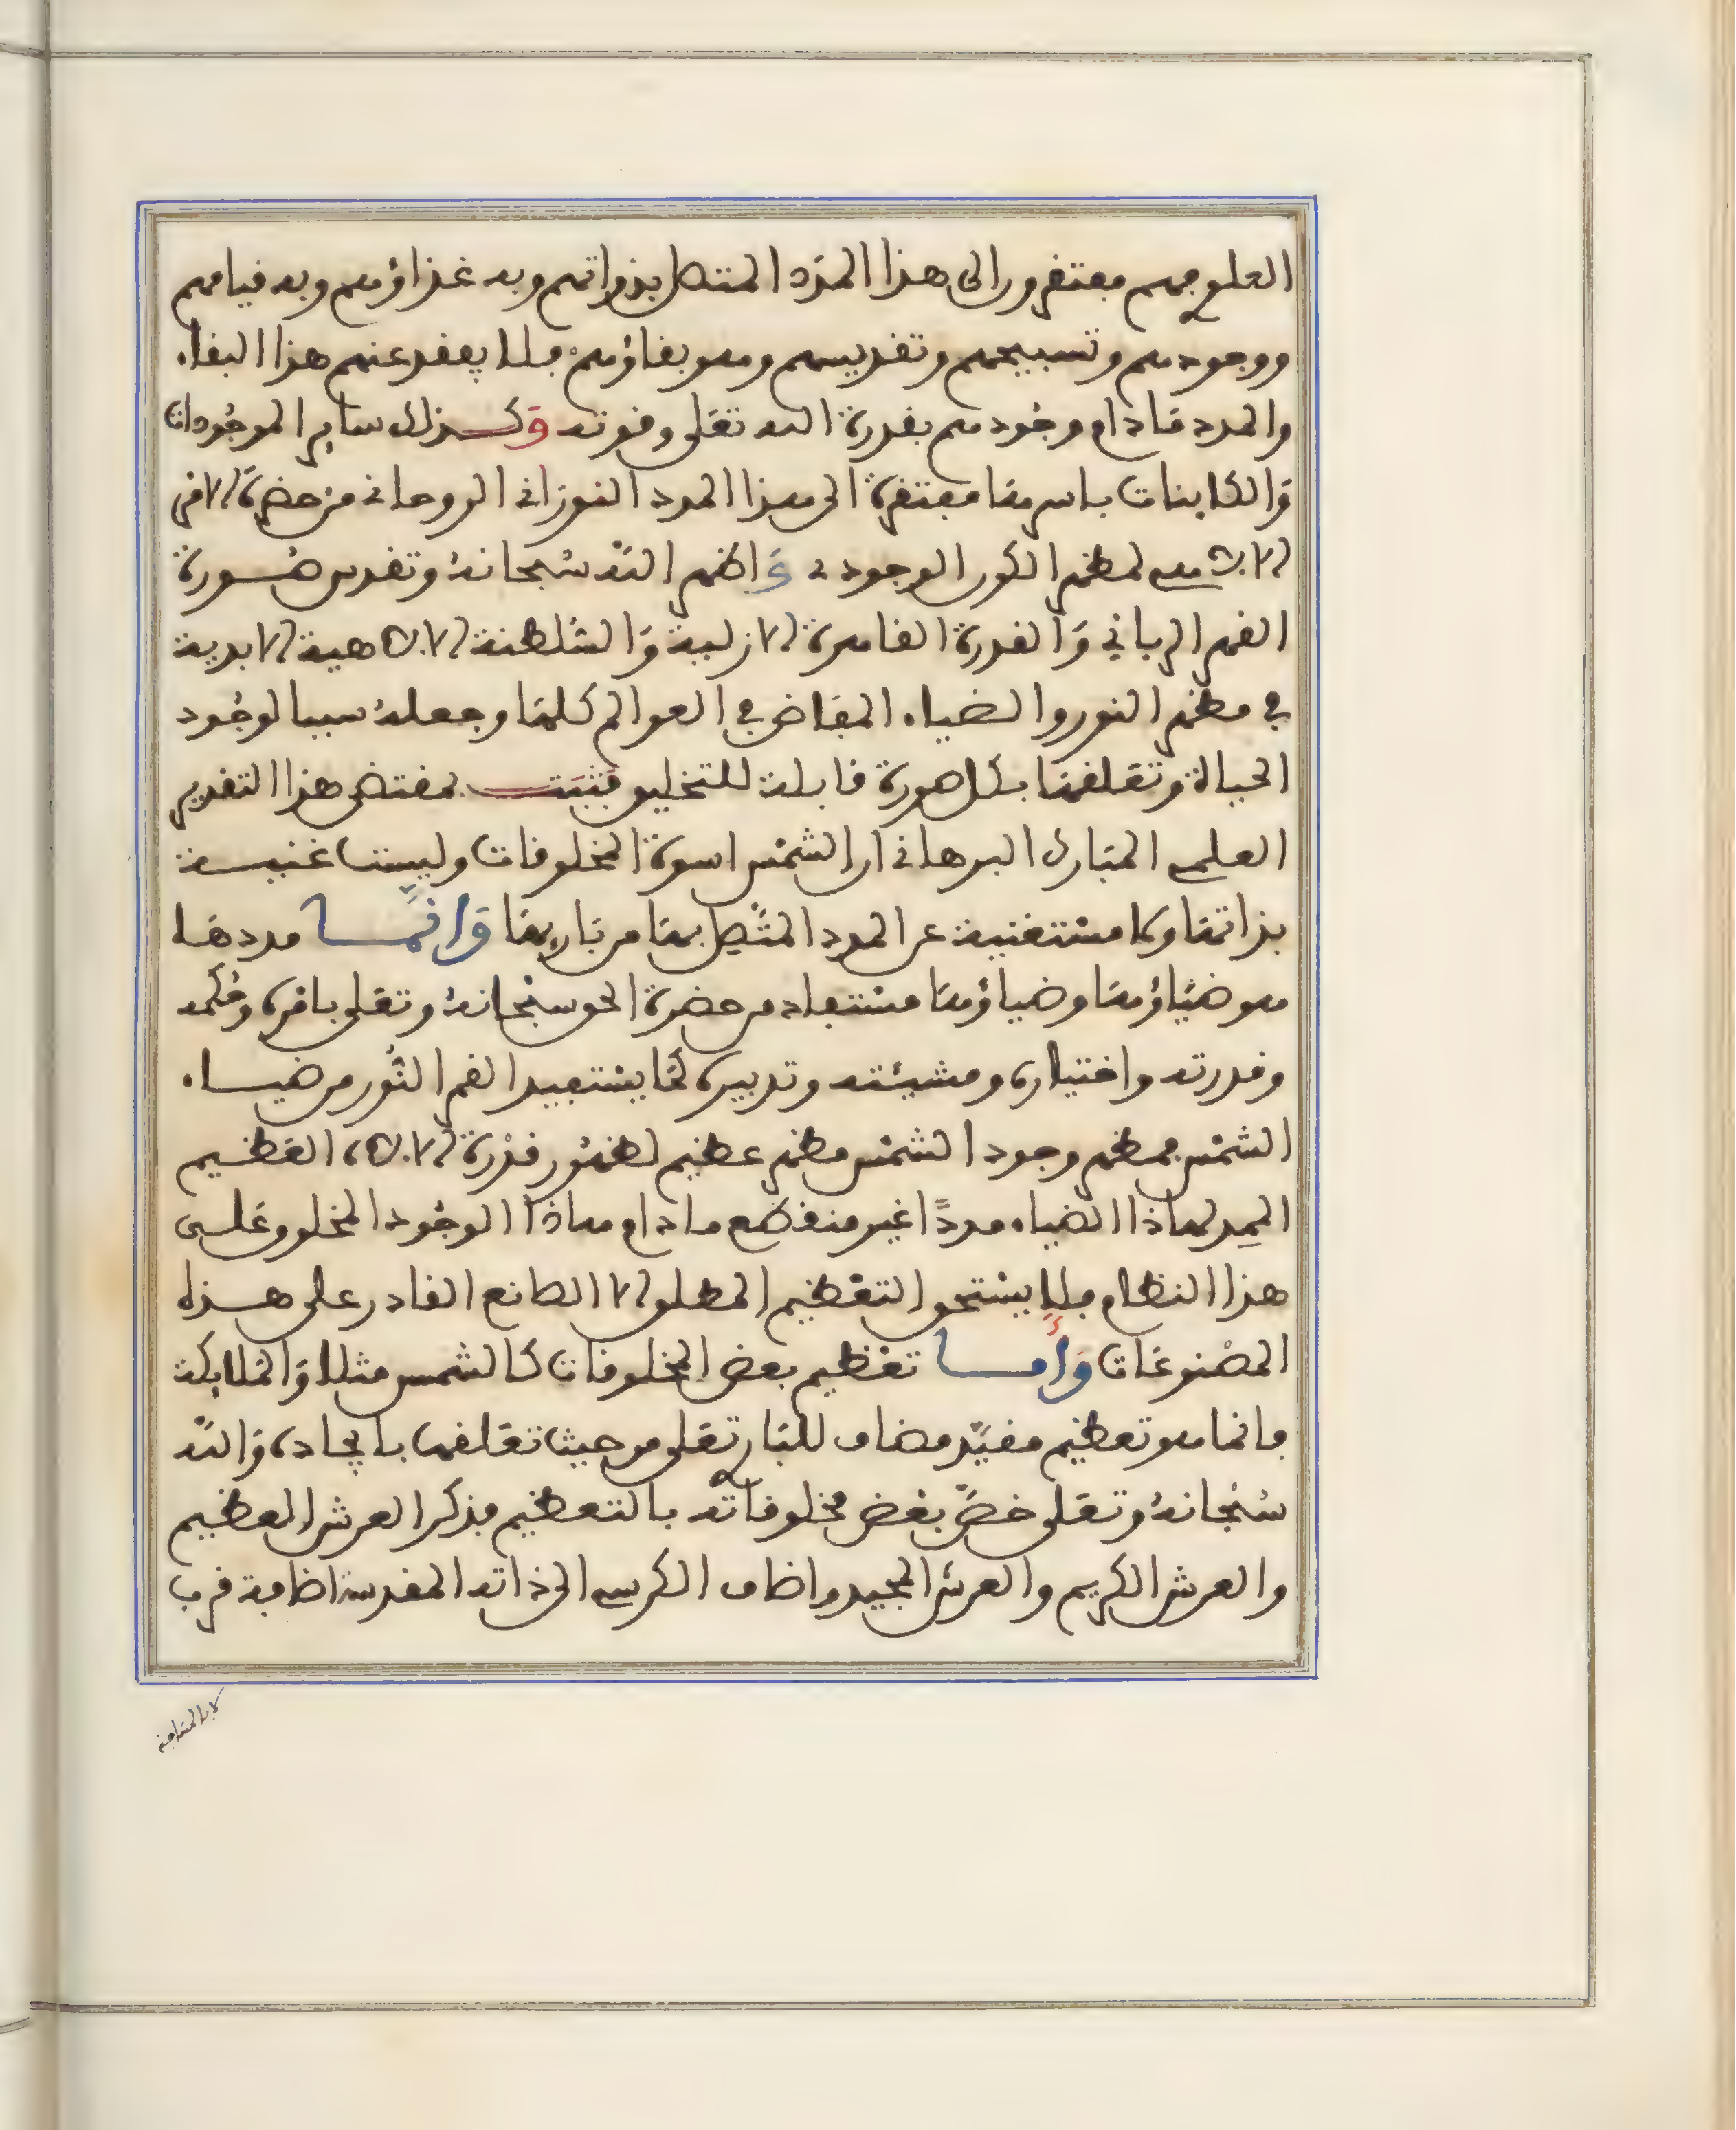 العلى فهم مفتقرون الى هذا المدد المتصل بذواتهم وبه غذاؤهم وبه قيامهم
ووجودهم وتسبيحهم وتقديسهم وهو بقاؤهم فلا يفقد عنهم هذا البقاء
والمدد مَادام وجُودهم بقدرة الله تعَلى وقوته وَكذلك ساير الموجُودات
وَالكاينات باسرهَا مفتقرة الى هذا المدد النورَانى الروحانى من حضرَة الامر
الالاهى لمظهر الكون الوجودى وَاظهر اللّه سُبحانهُ وتقدس صُورة
القهر الربانى وَالقدرة القاهرة الازلية وَالسُلطنة الالاهية الابدية
في مظهر النور والضياء المفاض في العوالم كلهَا وجعلهُ سببا لوجُود
الحياة وتعَلقهَا بكل صورة قابلة للتخليق فثبَت بمقتضى هذا التقرير
العلمى المبَارك البرهانى ان الشمْس اسوة المخلوقات وليسَت غنيـة
بذاتهَا ولا مسْتغنية عن المدد المتّصِل بهَا من بَاريهَا وَانمَّا مددهَا
هو ضيَاؤهَا وضياؤهَا مسْتفاد من حضرة الحق سبْحانهُ وتعَلى بامره وحُكمه
وقدرته واختياره ومشيئته وتدبيره كمَا يسْتفيد القمر النُّور من ضيـاء
الشمْس فمظهر وجود الشمْس مظهر عظيم لظهُور قدْرَة الالاه العَظيم
الممِد لهاذا الضياء مددًا غير منقطع ما دام هاذا الوجُود المخلوق عَلى
هذا النظام فلا يسْتحق التعْظيم المطلق الا الصانع القادر على هـذه
المصْنوعَات وَأما تعْظيم بعض المخلوقات كالشمس مثلا وَالمَلايكة
فانما هو تعظيم مقيَّد مضاف للبَارى تعَلى من حيث تعَلقها بايجاده وَاللّه
سُبْحانهُ وتعَلى خصَّ بعْض مخلوقاته بالتعظيم فذكر العرش العظيم
والعرش الكريم والعرش المجيد واضاف الكرسى الى ذاته المقدسة اضافة قرب